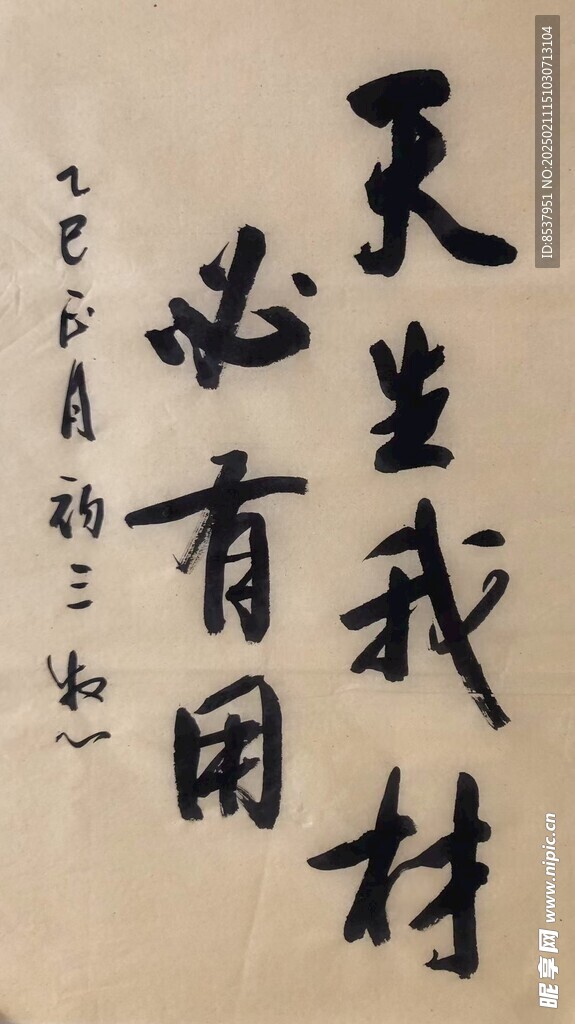 天生我材
必有用
乙巳正月初三牧心
ID:8537951 NO:20250211151030713104
昵享网 www.nipic.cn